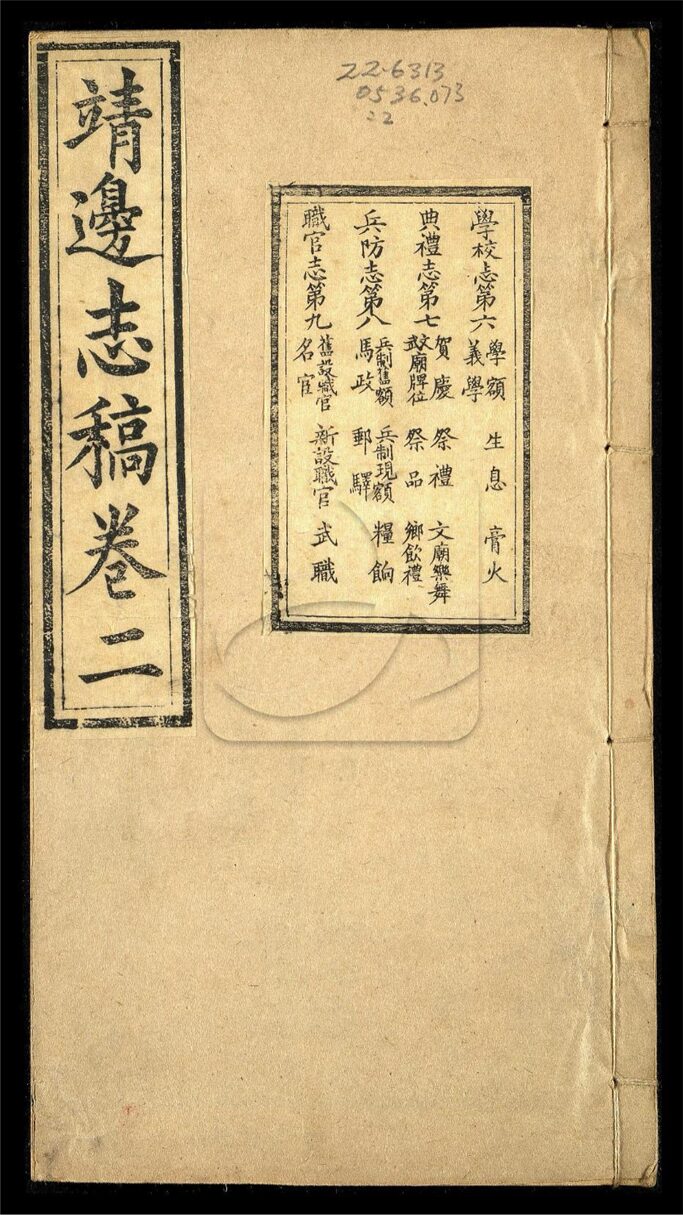 靖邊志稿卷二
22-6313
0536.073
22
學校志第六 學額 生息 膏火
義學
典禮志第七 賀慶 祭禮 文廟樂舞
文武廟牌位 祭品 鄉飲禮
兵防志第八 兵制舊額 兵制現額 糧餉
馬政 郵驛
職官志第九 舊設職官 新設職官 武職
名宦